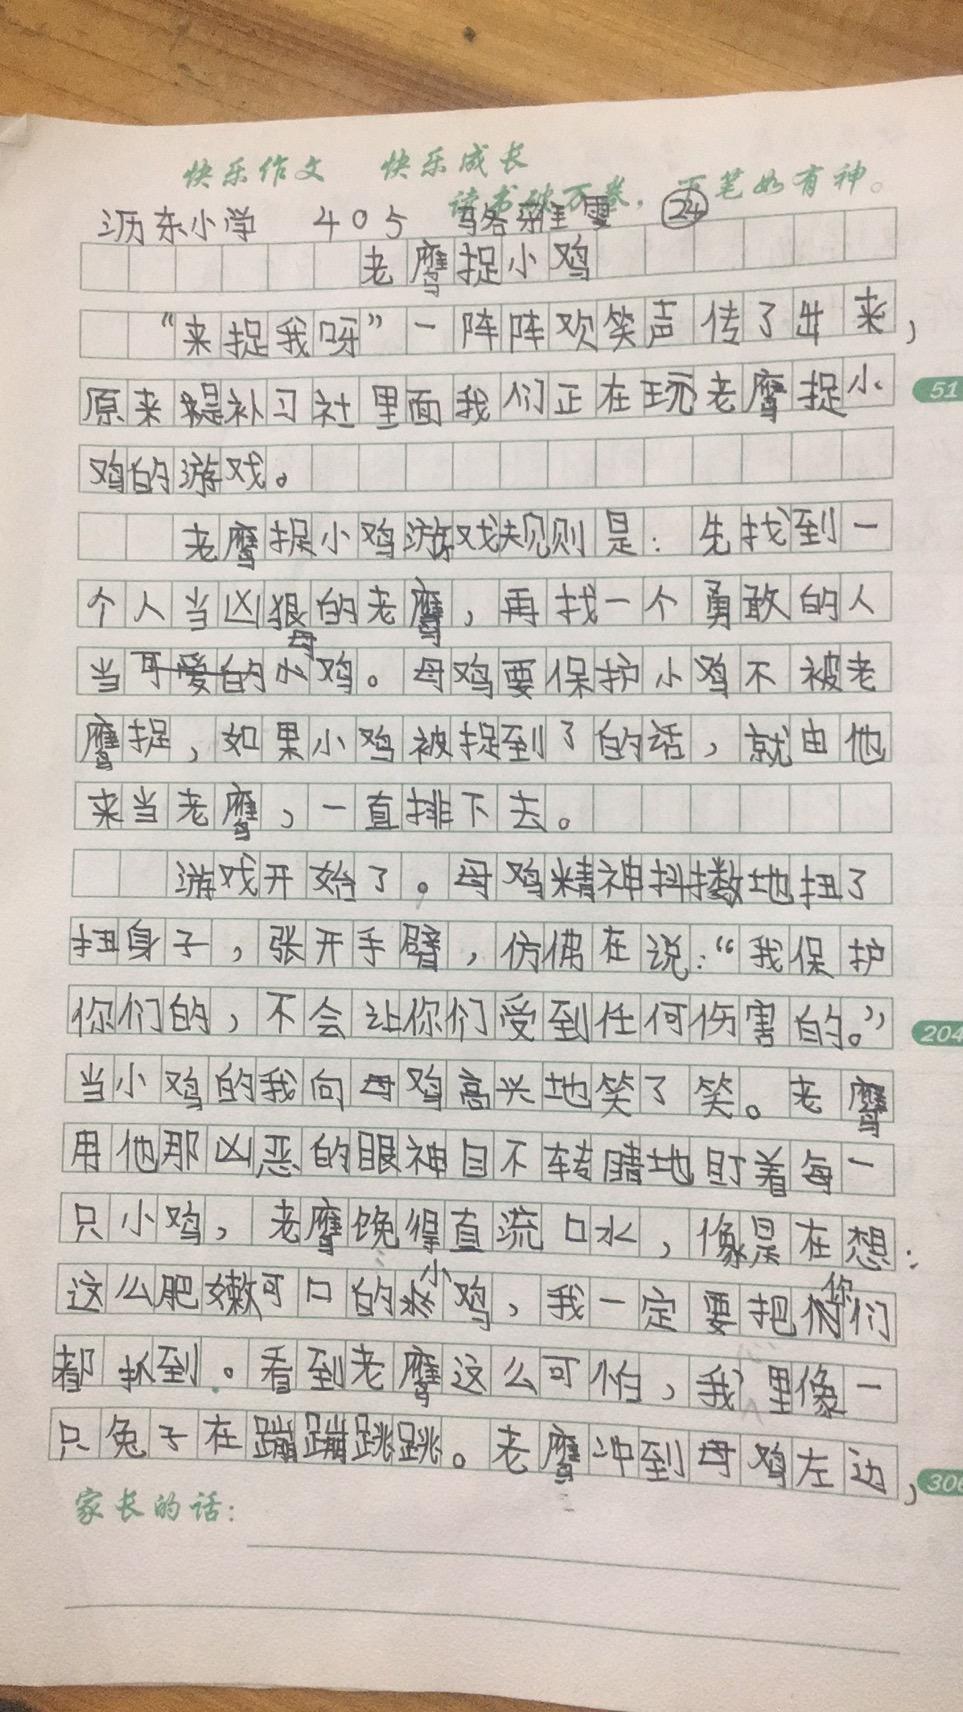 快乐作文 快乐成长
读书破万卷，下笔如有神。
沥东小学 405 骆 雯 24
老鹰捉小鸡
“来捉我呀”一阵阵欢笑声传了出来，
原来是补习社里面我们正在玩老鹰捉小
鸡的游戏。
老鹰捉小鸡游戏规则是：先找到一
个人当凶狠的老鹰，再找一个勇敢的人
当母鸡。母鸡要保护小鸡不被老
鹰捉，如果小鸡被捉到了的话，就由他
来当老鹰，一直排下去。
游戏开始了。母鸡精神抖擞地扭了
扭身子，张开手臂，仿佛在说：“我保护
你们的，不会让你们受到任何伤害的。”
当小鸡的我向母鸡高兴地笑了笑。老鹰
用他那凶恶的眼神目不转睛地盯着每一
只小鸡，老鹰馋得直流口水，像是在想：
这么肥嫩可口的小鸡，我一定要把你们
都抓到。看到老鹰这么可怕，我里像一
只兔子在蹦蹦跳跳。老鹰冲到母鸡左边，
51
204
306
家长的话：